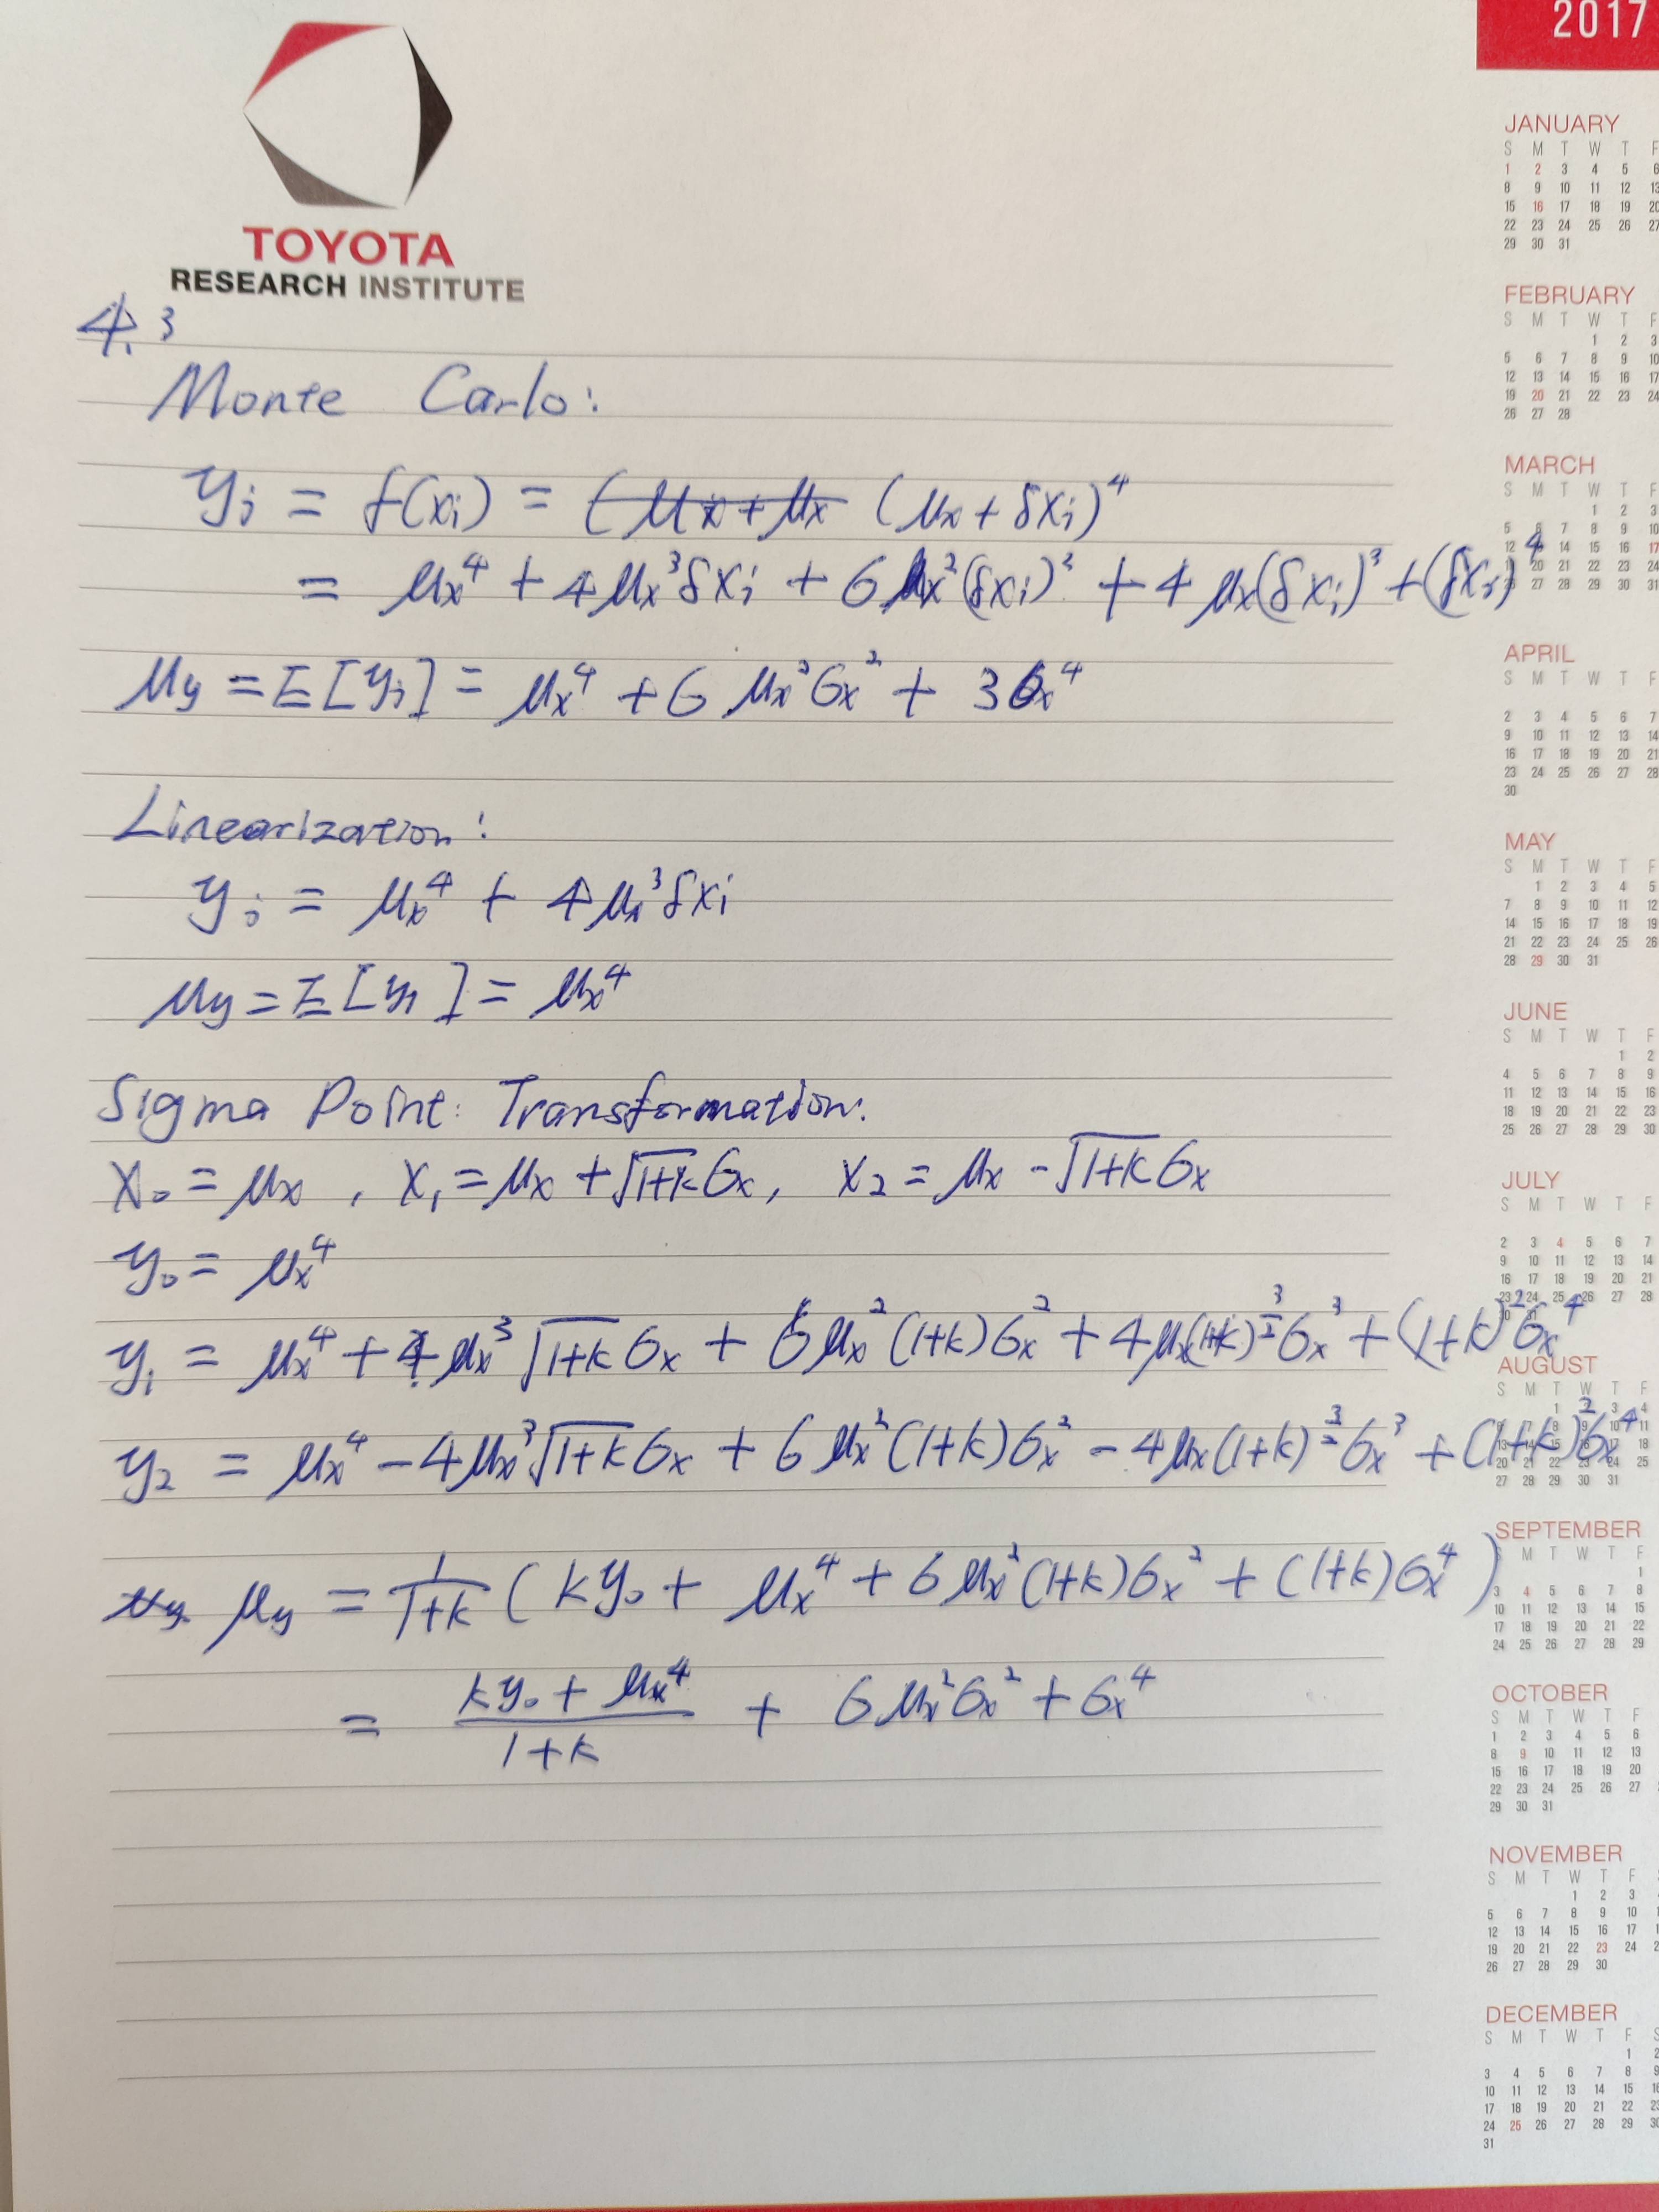 2017
TOYOTA
RESEARCH INSTITUTE
4.3
Monte Carlo:
yᵢ = f(xᵢ) = (μx + μx (μx + δxᵢ)⁴
= μx⁴ + 4μx³δxᵢ + 6μx²(δxᵢ)² + 4μx(δxᵢ)³ + (δxᵢ)⁴
μy = E[yᵢ] = μx⁴ + 6μx²σx² + 3σx⁴
Linearization:
yᵢ = μx⁴ + 4μx³δxᵢ
μy = E[yᵢ] = μx⁴
Sigma Point Transformation.
x₀ = μx , x₁ = μx + √(1+k) σx, x₂ = μx - √(1+k) σx
y₀ = μx⁴
y₁ = μx⁴ + 4μx³√(1+k) σx + 6μx²(1+k)σx² + 4μx(1+k)^(3/2) σx³ + (1+k)²σx⁴
y₂ = μx⁴ - 4μx³√(1+k) σx + 6μx²(1+k)σx² - 4μx(1+k)^(3/2) σx³ + (1+k)²σx⁴
μy μy = 1/(1+k) ( ky₀ + μx⁴ + 6μx²(1+k)σx² + (1+k)σx⁴ )
= (ky₀ + μx⁴)/(1+k) + 6μx²σx² + σx⁴
JANUARY
S M T W T F
1 2 3 4 5 6
8 9 10 11 12 13
15 16 17 18 19 20
22 23 24 25 26 27
29 30 31
FEBRUARY
S M T W T F
1 2 3
5 6 7 8 9 10
12 13 14 15 16 17
19 20 21 22 23 24
26 27 28
MARCH
S M T W T F
1 2 3
5 6 7 8 9 10
12 14 15 16 17
20 21 22 23 24
27 28 29 30 31
APRIL
S M T W T F
2 3 4 5 6 7
9 10 11 12 13 14
16 17 18 19 20 21
23 24 25 26 27 28
30
MAY
S M T W T F
1 2 3 4 5
7 8 9 10 11 12
14 15 16 17 18 19
21 22 23 24 25 26
28 29 30 31
JUNE
S M T W T F
1 2
4 5 6 7 8 9
11 12 13 14 15 16
18 19 20 21 22 23
25 26 27 28 29 30
JULY
S M T W T F
2 3 4 5 6 7
9 10 11 12 13 14
16 17 18 19 20 21
23 24 25 26 27 28
AUGUST
S M T W T F
1 3 4
10 11
18
20 21 22 23 24 25
27 28 29 30 31
SEPTEMBER
M T W T F
1
3 4 5 6 7 8
10 11 12 13 14 15
17 18 19 20 21 22
24 25 26 27 28 29
OCTOBER
S M T W T F
1 2 3 4 5 6
8 9 10 11 12 13
15 16 17 18 19 20
22 23 24 25 26 27
29 30 31
NOVEMBER
S M T W T F
1 2 3
5 6 7 8 9 10
12 13 14 15 16 17
19 20 21 22 23 24
26 27 28 29 30
DECEMBER
S M T W T F S
1 2
3 4 5 6 7 8 9
10 11 12 13 14 15 16
17 18 19 20 21 22 23
24 25 26 27 28 29 30
31